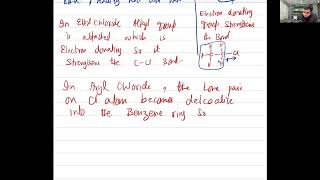 In Ethyl Chloride Alkyl group
is attached which is
Electron donating So it
Strengthens the C-Cl Bond.
Electron donating
group Strengthens
the Bond
In Aryl Chloride, the Lone pair
on Cl atom becomes delocalize
into the Benzene ring So